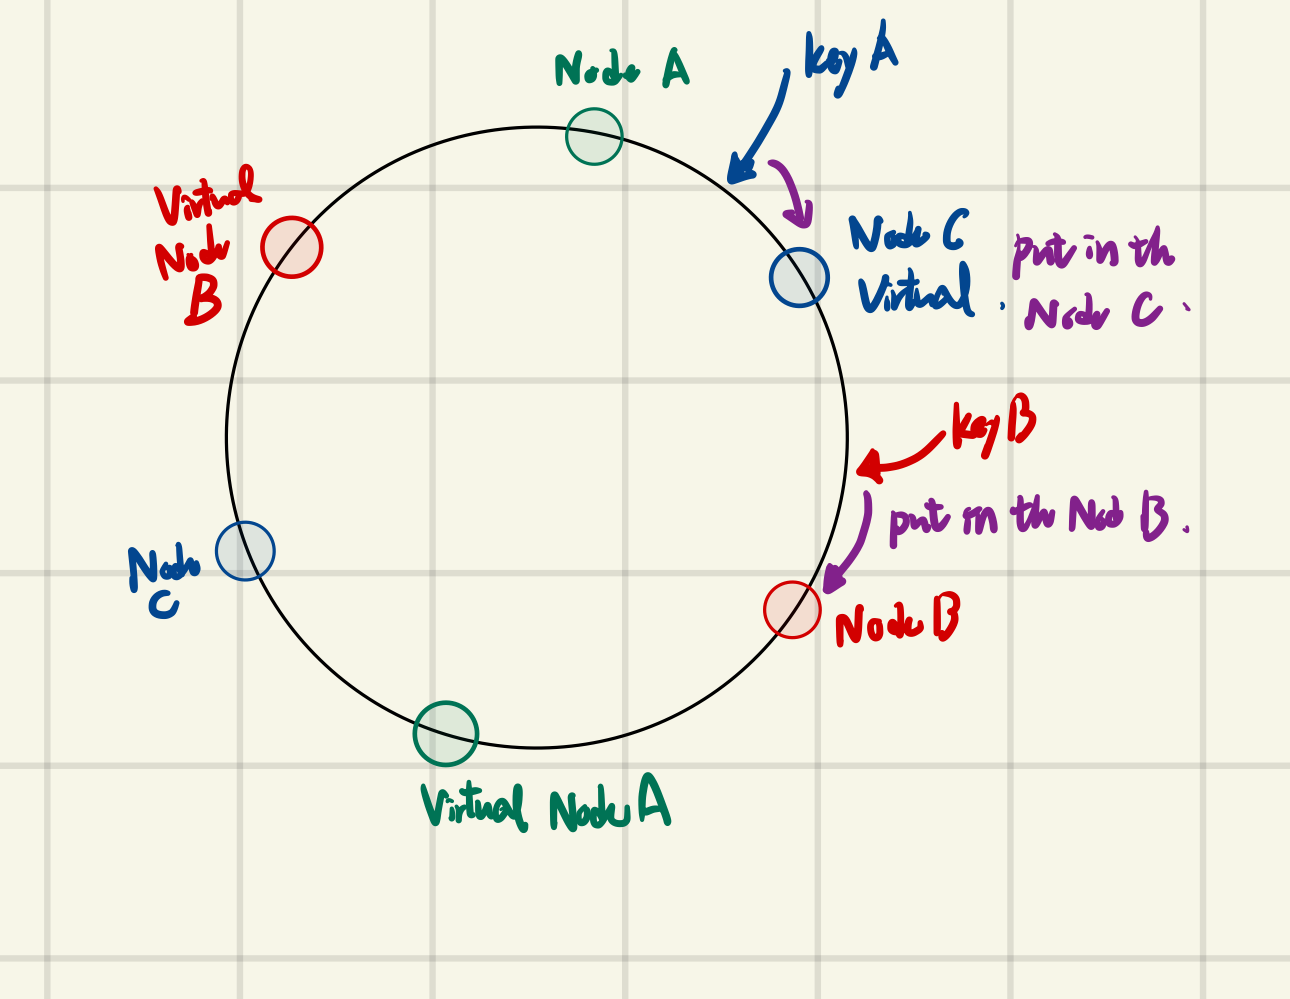 Node A
key A
Virtual
Node
B
Node C
Virtual.
put in the
Node C.
key B
put in the Node B.
Node
C
Node B
Virtual Node A